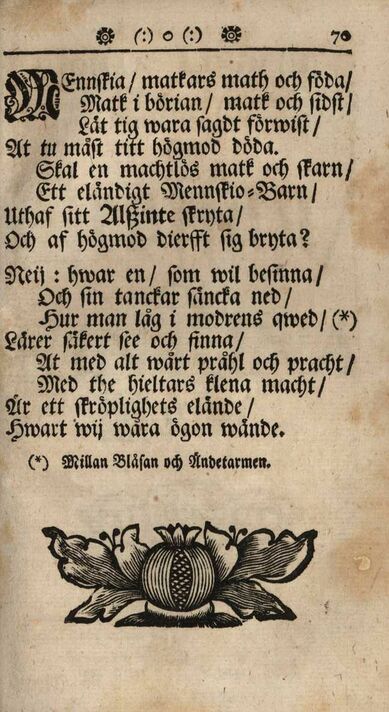 (:) o (:) 70
MEnnskia / matkars math och föda /
Matk i börian / matk och sidst /
Lät tig wara sagdt förwist /
At tu mäst titt högmod döda.
Skal en machtlös matk och skarn /
Ett eländigt Mennskio-Barn /
Uthaf sitt Alßinte skryta /
Och af högmod dierfft sig bryta?
Neij : hwar en / som wil besinna /
Och sin tanckar säncka ned /
Hur man låg i modrens qwed / (*)
Lärer säkert see och finna /
At med alt wårt pråhl och pracht /
Med the hieltars klena macht /
Är ett skröplighets elände /
Hwart wij wåra ögon wände.
(*) Millan Blåsan och Ändetarmen.